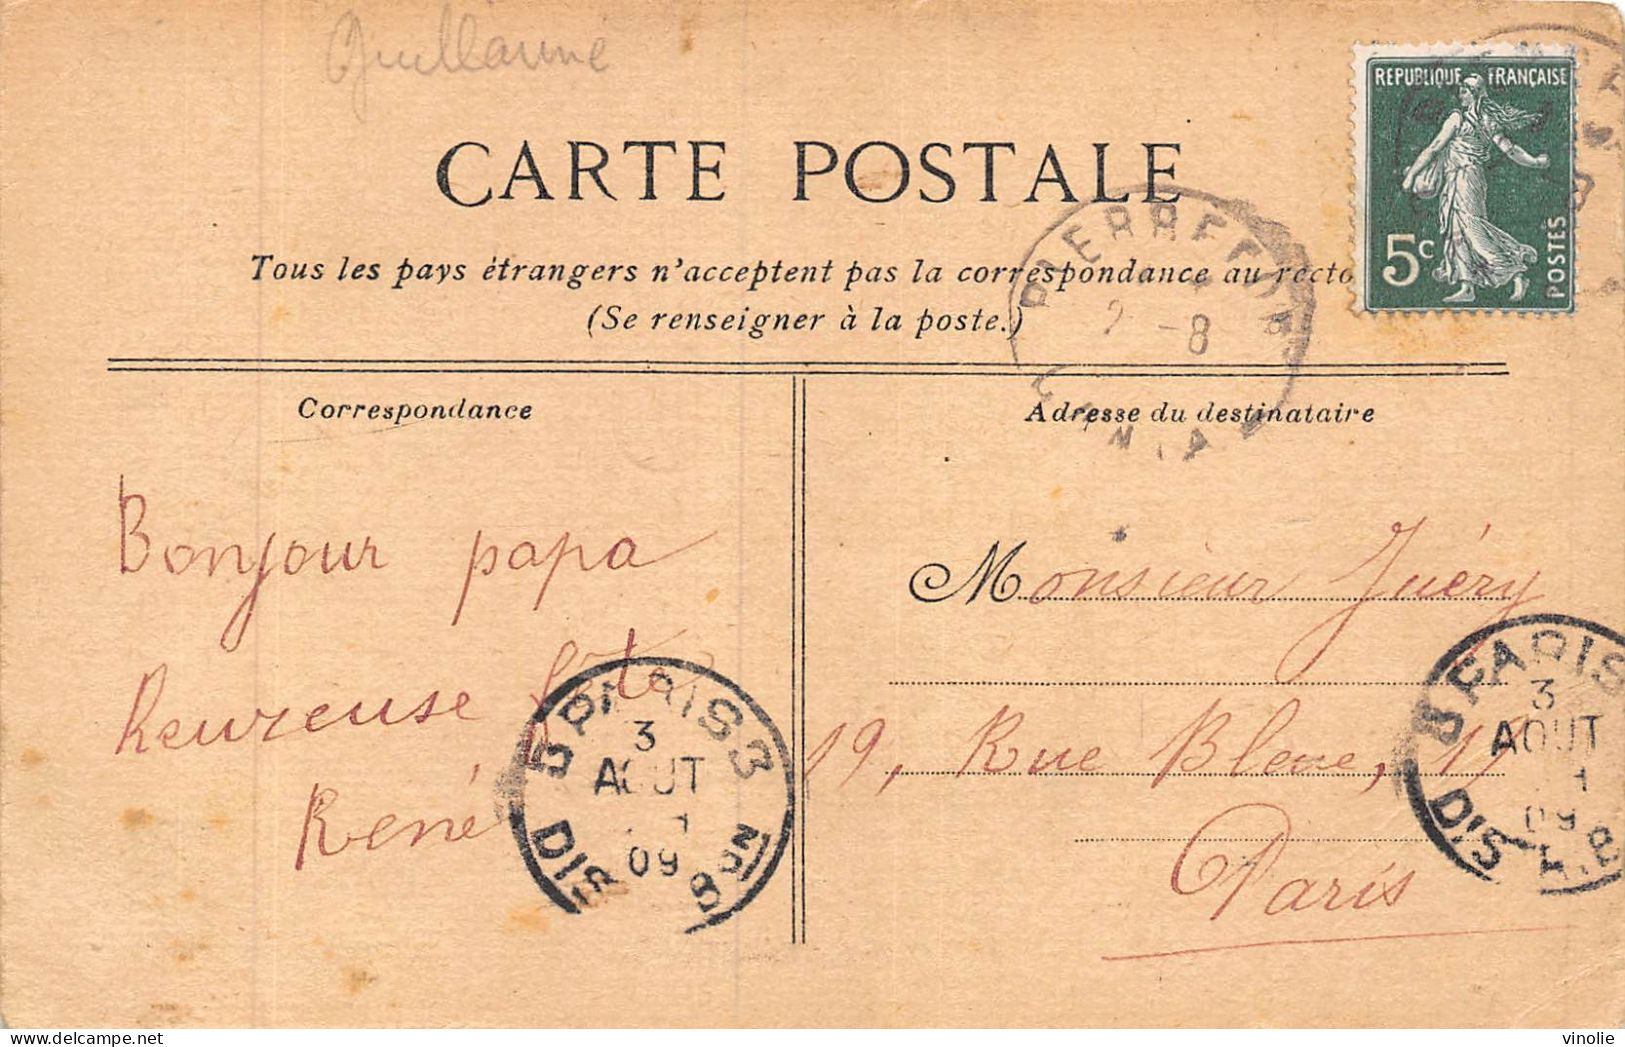 Guillaume
RÉPUBLIQUE FRANÇAISE
5c
POSTES
CARTE POSTALE
Tous les pays étrangers n'acceptent pas la correspondance au recto
(Se renseigner à la poste.)
2 -8
Correspondance
Adresse du destinataire
Bonjour papa
heureuse fête
René
Monsieur Juéry
19, Rue Bleue, 19
Paris
PARIS
3
AOUT
09
DIS
PARIS
3
AOUT
09
DIS
vinolie